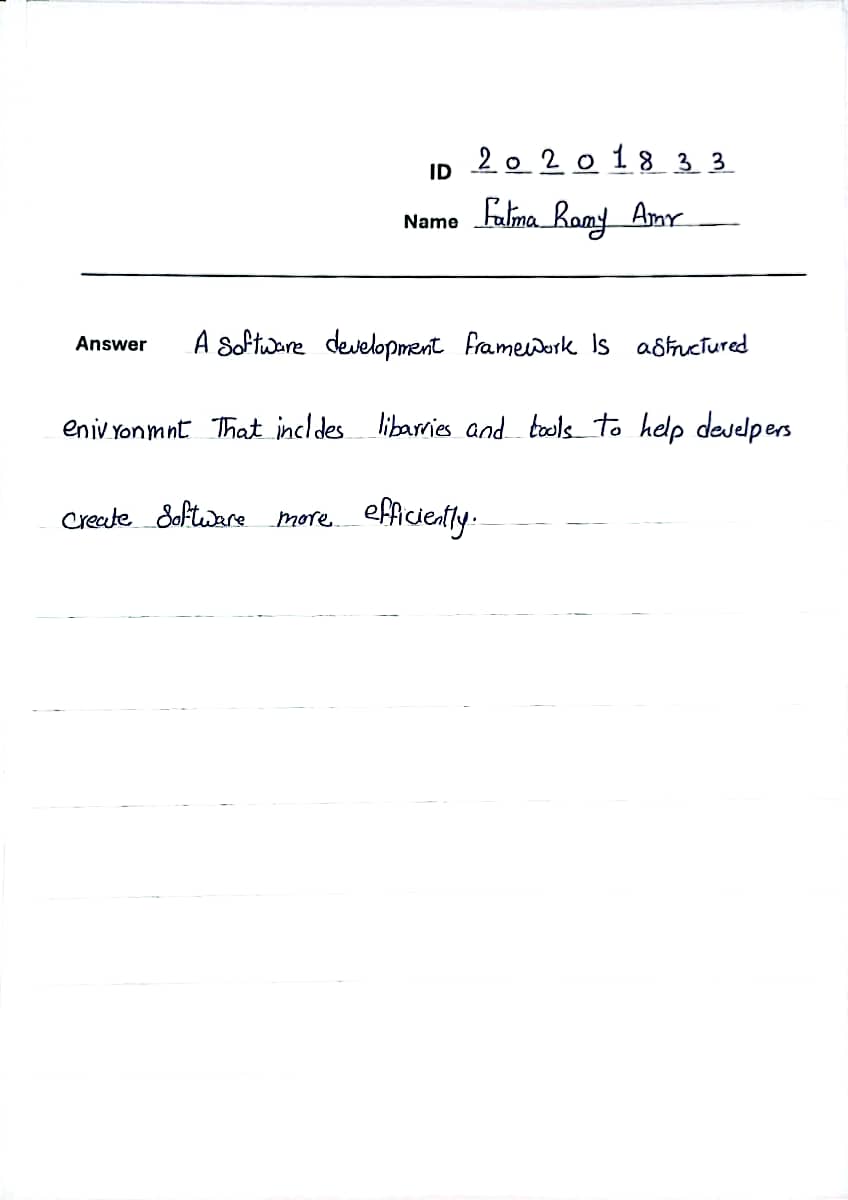 ID 20201833
Name Fatma Ramy Amr
Answer A Software development framework Is astructured
enivronmnt That incldes libarries and tools to help develpers
create Software more efficiently.